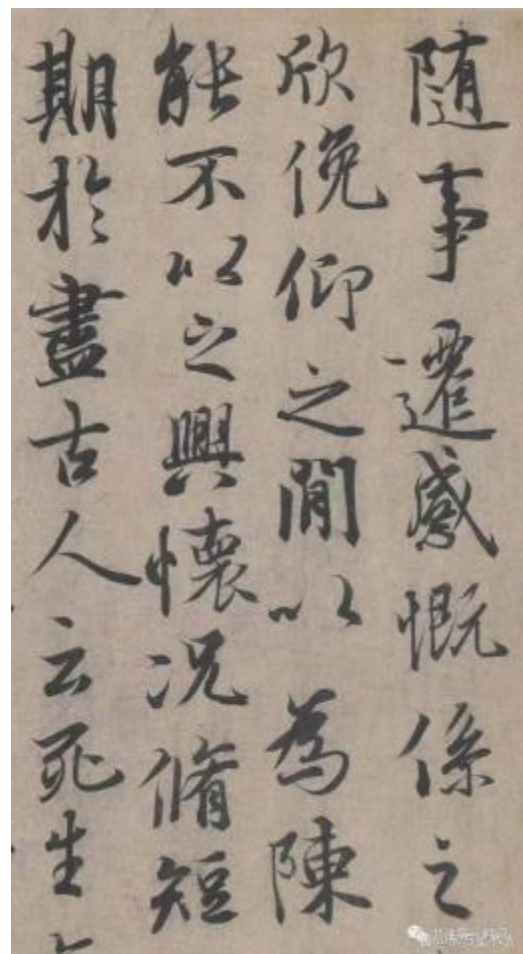 随事遷感慨係之
欣俛仰之閒以為陳
能不以之興懷况脩短
期於盡古人云死生